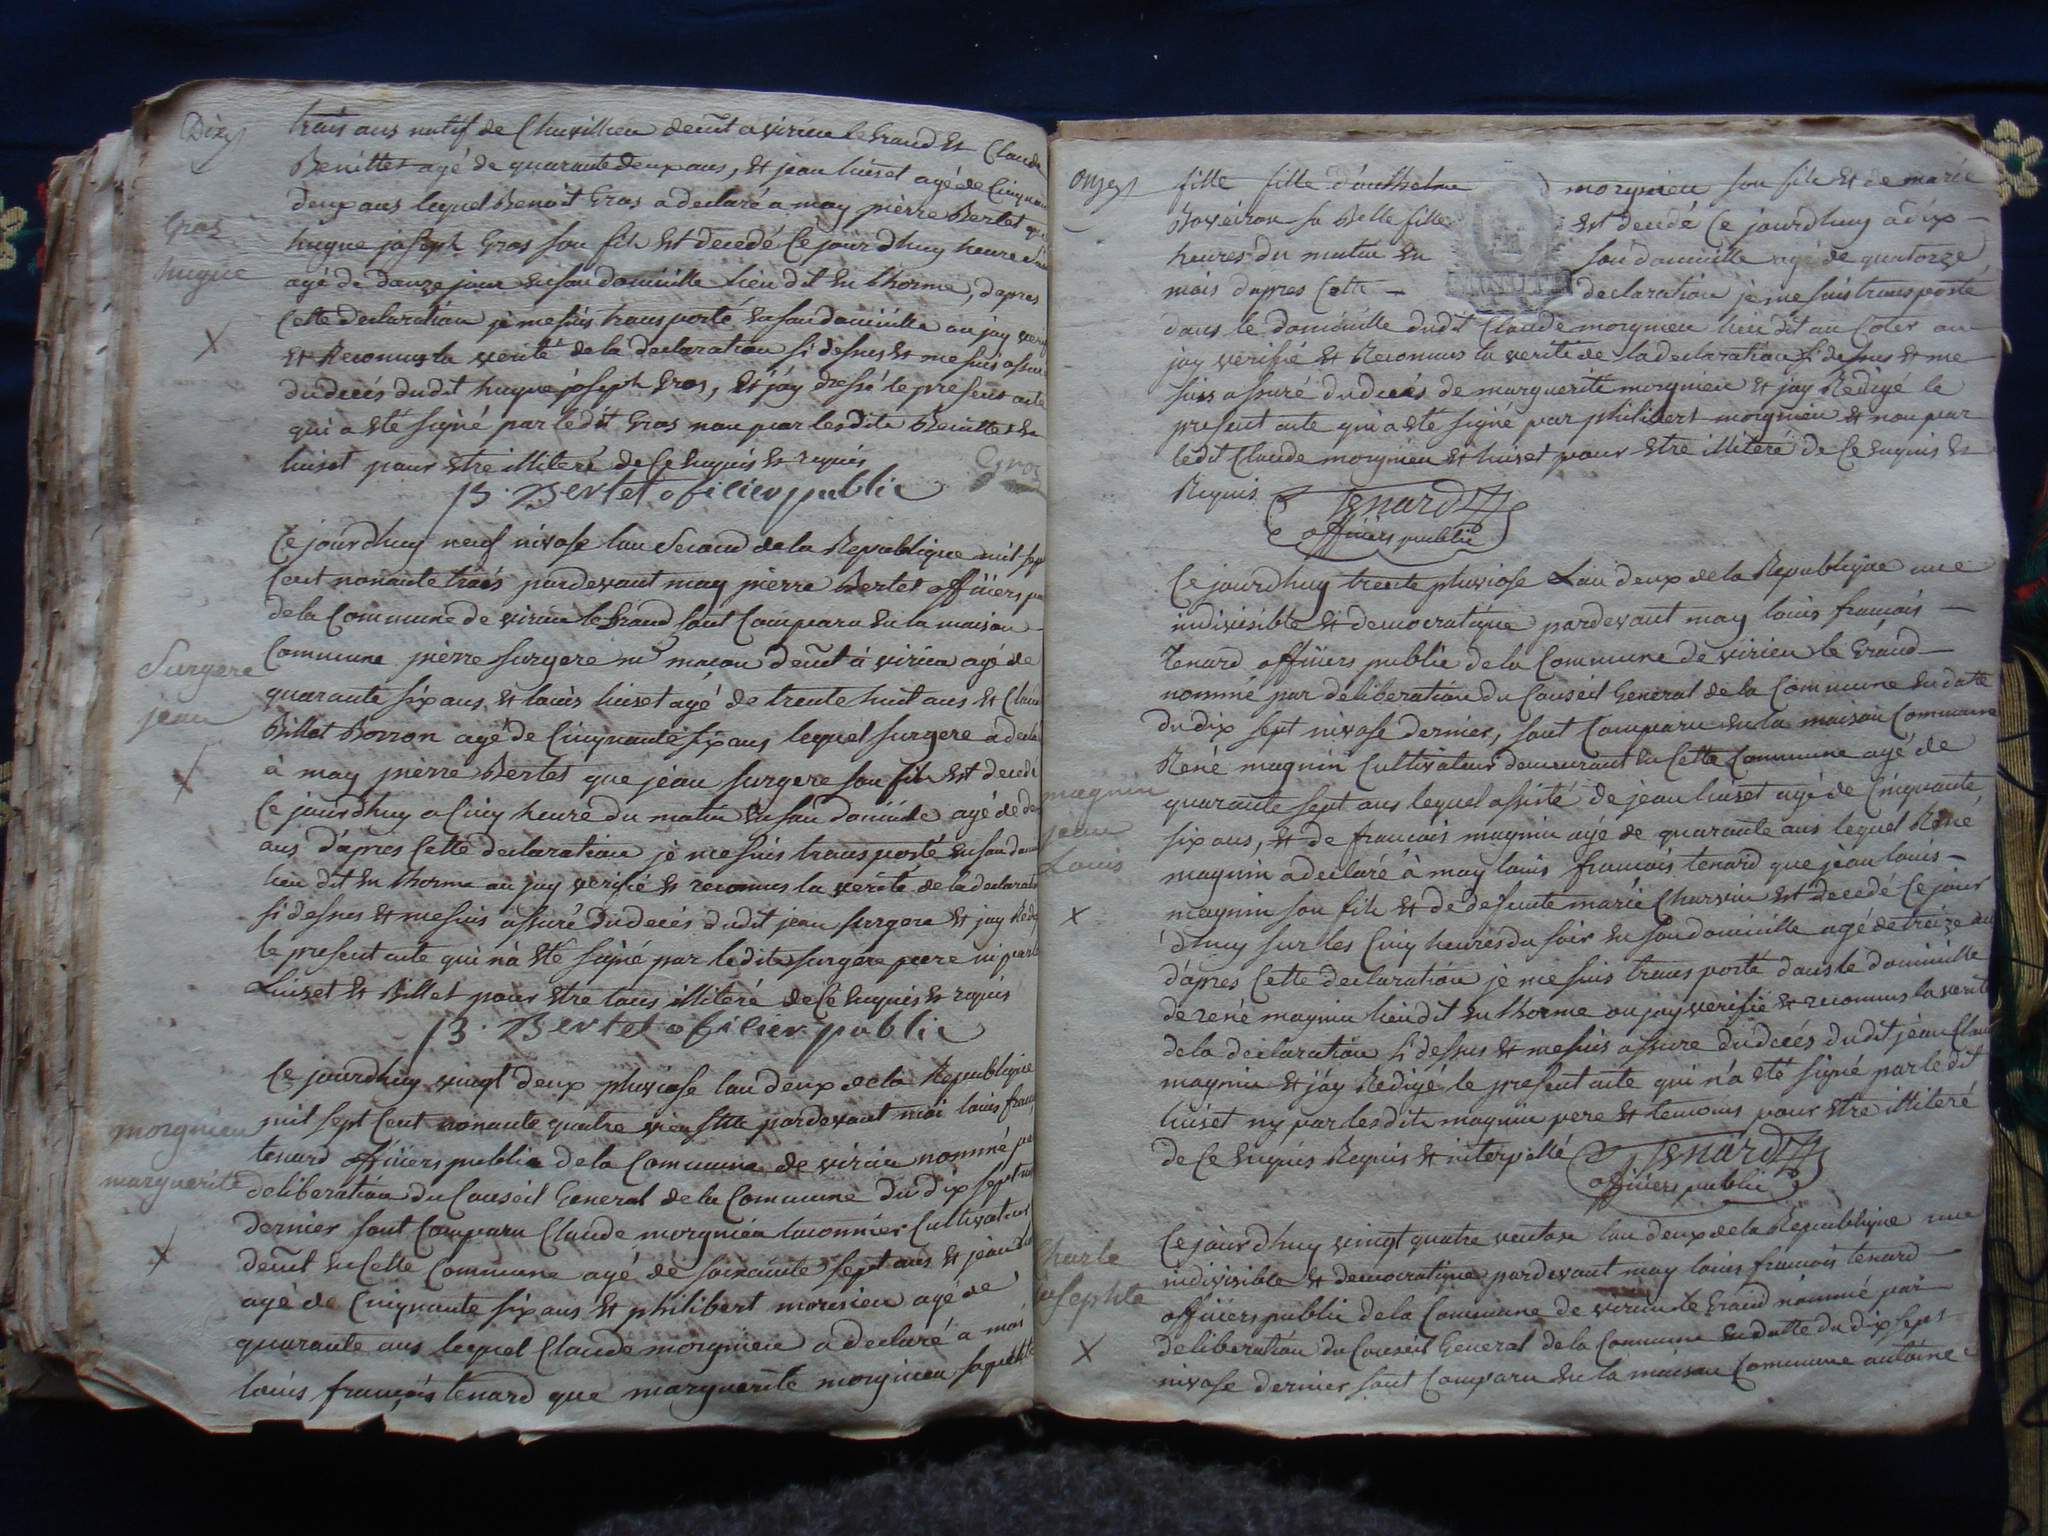 Dix
trais ans natif de Chavillieu demt a virieu le Grand et Claude
Benittet agé de quarante deux ans, et jean huset agé de Cinquante
deux ans lequel Benoit Gros a declaré a moy pierre Bertet que
Gros
hugue
hugue joseph Gros son fils est decedé Ce jourdhuy heure
agé de douze jour en son domicille lieu dit en thorme, dapres
Cette declaration je me suis transporté en son domicille ou jay verifié
et Reconnus la verité de la declaration si dessus et me suis assuré
X
du decés dudit hugue joseph Gros, et jay dressé le present acte
qui a eté signé par ledit Gros non par lesdits Benittet et
huset pour etre illiteré de Ce enquis et requis
Gros
P. Bertet oficier public
Ce jourdhuy neuf nivose lan Second de la Republique mil sept
Cent nonante trois pardevant moy pierre Bertet officiers
de la Commune de virieu le Grand sont Comparu en la maison
Surgere
jean
Commune pierre surgere me macon demt à virieu agé de
quarante six ans et louis huset agé de trente huit ans et Claude
Billet Borron agé de Cinquante six ans lequel surgere a declaré
à moy pierre Bertet que jean surgere son fils est decedé
X
Ce jourdhuy a Cinq heure du matin en son domicille agé de
ans d'apres Cette declaration je me suis transporté en son
lieu dit en thorme ou jay verifié et reconnus la verité de la declaration
si desus et me suis assuré du decés dudit jean surgere et jay
le present acte qui n'a eté signé par ledit surgere pere ni par
huset et Billet pour etre tous illiteré de Ce enquis et requis
P. Bertet oficier public
Ce jourdhuy vingt deux pluviose lan deux de la Republique
morgnieu
marguerite
mil sept Cent nonante quatre vieu stile pardevant moi louis francois
tenard officiers public de la Commune de virieu nommé par
deliberation du Conseil General de la Commune du dix sept
dernier sont Comparu Claude morgnieu Cultivateur
X
demt en Cette Commune agé de soixante sept ans et jean
agé de Cinquante six ans et philibert morgnieu agé de
quarante ans lequel Claude morgnieu a declaré a moi
louis françois tenard que marguerite morgnieu sa petite
Onze
fille fille d'anthelme morgnieu son fils et de marie
Boveiron sa Belle fille est decedé Ce jourdhuy à dix
heures du matin en son domicille agé de quatorze
mois dapres Cette declaration je me suis transporté
dans le domicille dudit Claude morgnieu lieu dit au Coler ou
jay verifié et Reconnus la verité de la declaration si desus et me
suis assuré du decés de marguerite morgnieu et jay Redigé le
present acte qui a eté signé par philibert morgnieu et non par
ledit Claude morgnieu et huset pour etre illiteré de Ce enquis et
Requis
Tenard
officiers public
Ce jourdhuy trente pluviose Lan deux de la Republique une
indivisible et democratique pardevant moy louis francois
Tenard officiers public de la Commune de virieu le Grand
nommé par deliberation du Conseil General de la Commune en date
du dix sept nivose dernier, sont Comparu en la maison Commune
René magnin Cultivateur demeurant en Cette Commune agé de
magnin
jean
Louis
quarante sept ans lequel assisté de jean huset agé de Cinquante
six ans, et de francois magnin agé de quarante ans lequel René
magnin a declaré à moy louis francois tenard que jean louis
X
magnin son fils et de defunte marie Charvin est decedé Ce jour
d'huy sur les Cinq heures du soir en son domicille agé de treize ans
d'apres Cette declaration je me suis transporté dans le domicille
de réné magnin lieu dit en thorme ou jay verifié et reconnus la verité
de la declaration si dessus et me suis assuré du decés dudit jean
magnin et j'ay Redigé le present acte qui n'a eté signé par ledit
huset ny par lesdits magnin pere et temoins pour etre illiteré
de Ce enquis Requis et interpellé
Tenard
officiers public
Charle
josephte
Ce jourdhuy vingt quatre ventose lan deux de la Republique une
indivisible et democratique pardevant moy louis francois tenard
officiers public de la Commune de virieu le Grand nommé par
X
deliberation du Conseil General de la Commune en datte du dix sept
nivose dernier sont Comparu en la maison Commune antoine